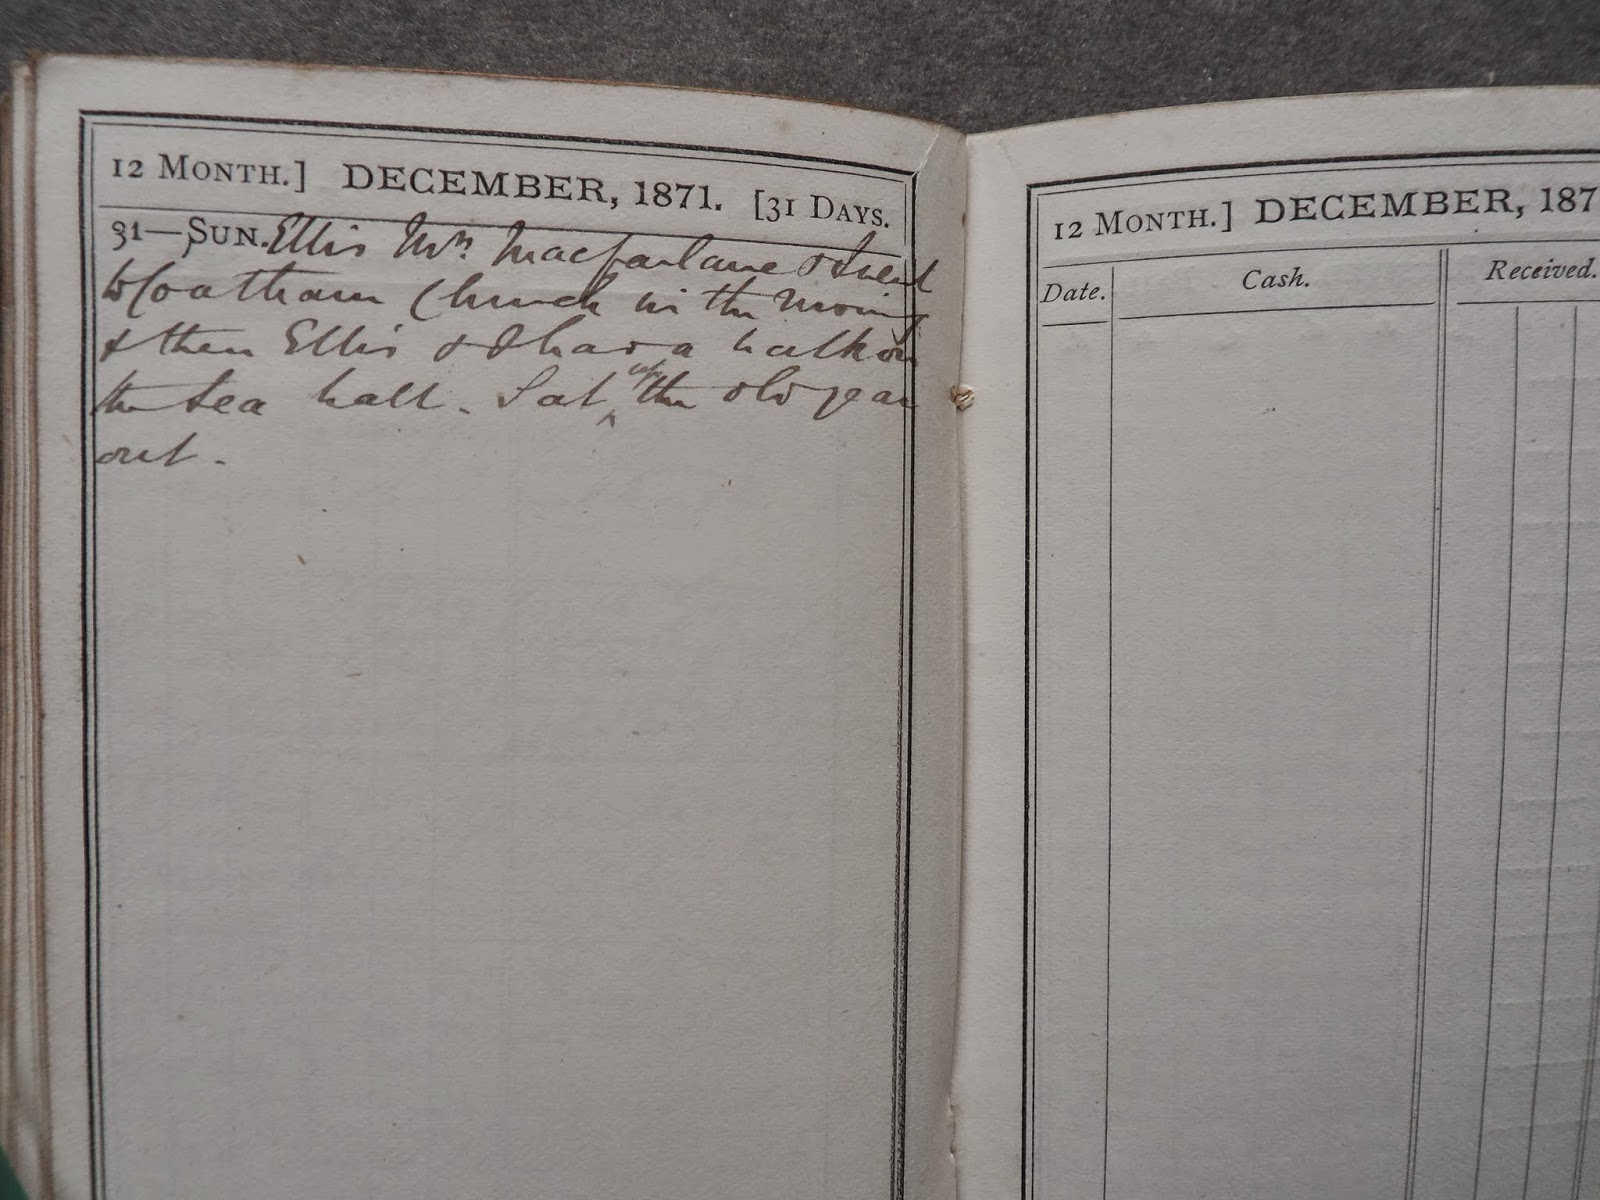 12 MONTH.] DECEMBER, 1871. [31 DAYS.
31—SUN. Ellis Mrs. Macfarlane & I went
to Coatham Church in the morning
& then Ellis & I had a walk on
the Sea Wall. Sat up the old year
out.
12 MONTH.] DECEMBER, 187
Date. Cash. Received.